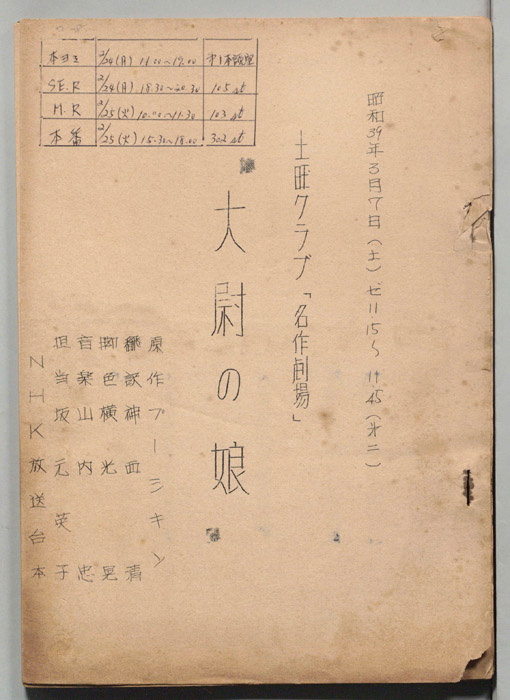 本ヨミ 2/24(月) 16.00～19.00 第1本読室
S.E.R 2/24(月) 18.30～20.30 105 st
M.R 2/25(火) 10.00～11.30 103 st
本番 2/25(火) 15.30～18.00 302 st
昭和39年3月7日(土)ゼ11.15～11.45(オ二)
土曜クラブ「名作劇場」
大尉の娘
原作プーシキン
翻訳神西清
脚色横光晃
音楽山内忠
担当坂元英子
NHK放送台本